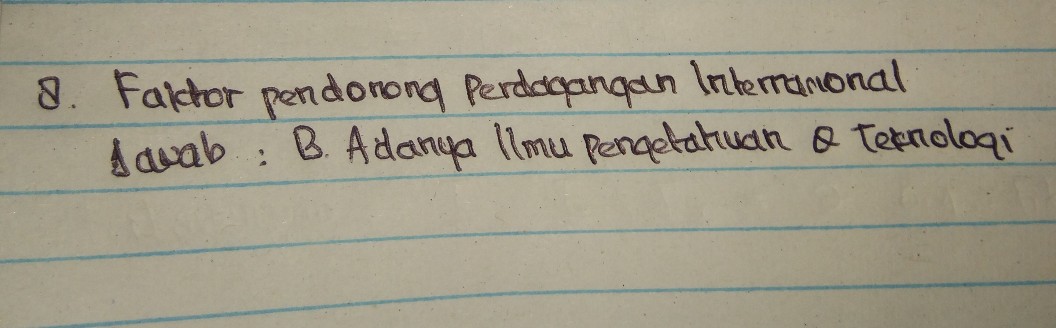 8. Faktor pendorong Perdagangan Internasional
Jawab : B. Adanya Ilmu Pengetahuan & Teknologi